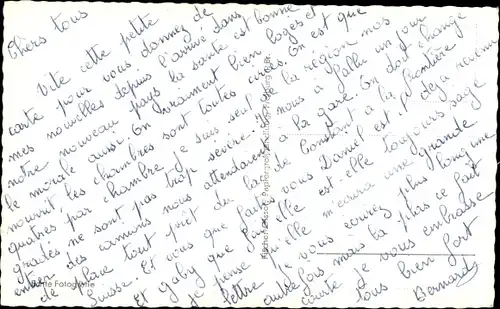 Chers tous
Vite cette petite
carte pour vous donner de
mes nouvelles depuis l'arrivé dans
notre nouveau pays la santé est bonne
le morale aussi. On vraiment bien logés et
nourrit les chambres sont toutes cirées. On est que
quatres par chambre je suis seul de la région nos
gradés ne sont pas trop sevère. Il nous a fallu un jour
entier des camions nous attendaient à la gare. On doit changé
de place tout près du lac de Constant à la frontière
Suisse. Et vous que faites vous Daniel est-il déja revenu
Et gaby que fait elle est-elle toujours sage
je pense qu'elle m'écrira une grande
lettre je vous écrirez plus long une
autre fois mais la plus ce fait
courte je vous embrasse
tous bien fort
Bernard
Echte Fotografie